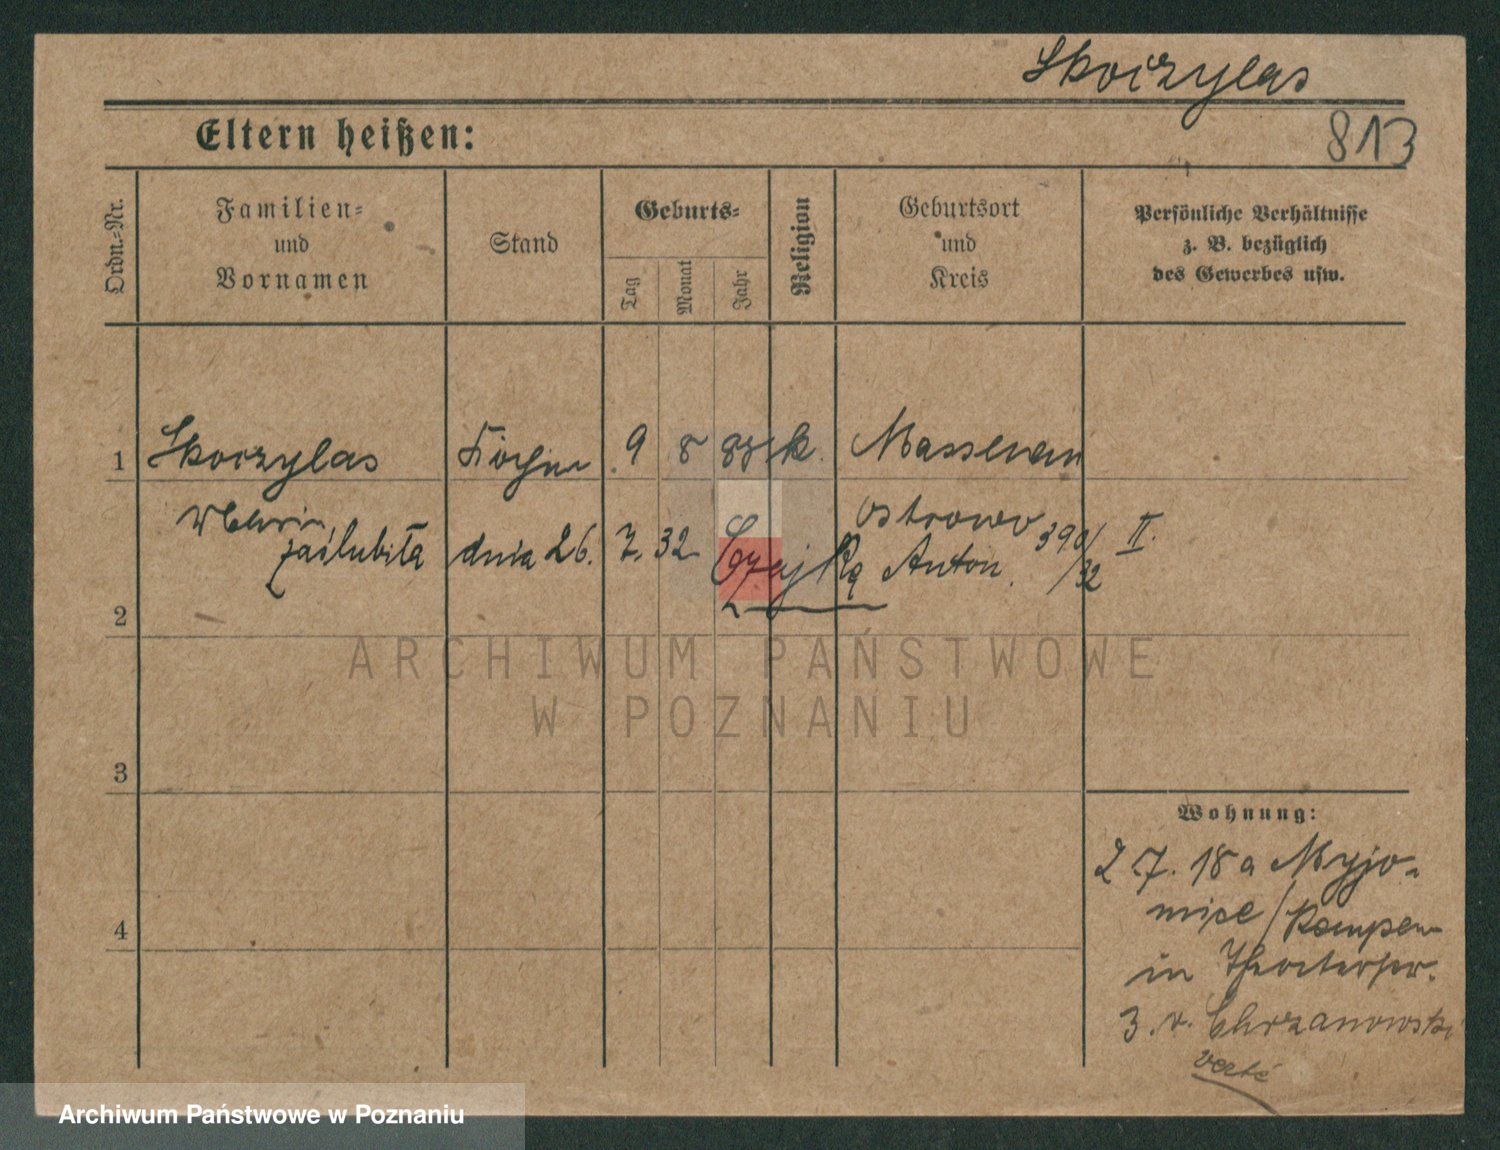 Skoczylas
813
Eltern heißen:
Ordn.-Nr.
Familien-
und
Vornamen
Stand
Geburts-
Tag
Monat
Jahr
Religion
Geburtsort
und
Kreis
Persönliche Verhältnisse
z. B. bezüglich
des Gewerbes usw.
1 Skoczylas 9 8 k.
Ostrowo
zaślubiła dnia 26. 7. 32 Czajka Anton. 390/32 II.
2
ARCHIWUM PAŃSTWOWE
W POZNANIU
3
Wohnung:
2.7.18 a Myjo-
mice / Kempen
4
in
3. v. Chrzanowski
verte
Archiwum Państwowe w Poznaniu